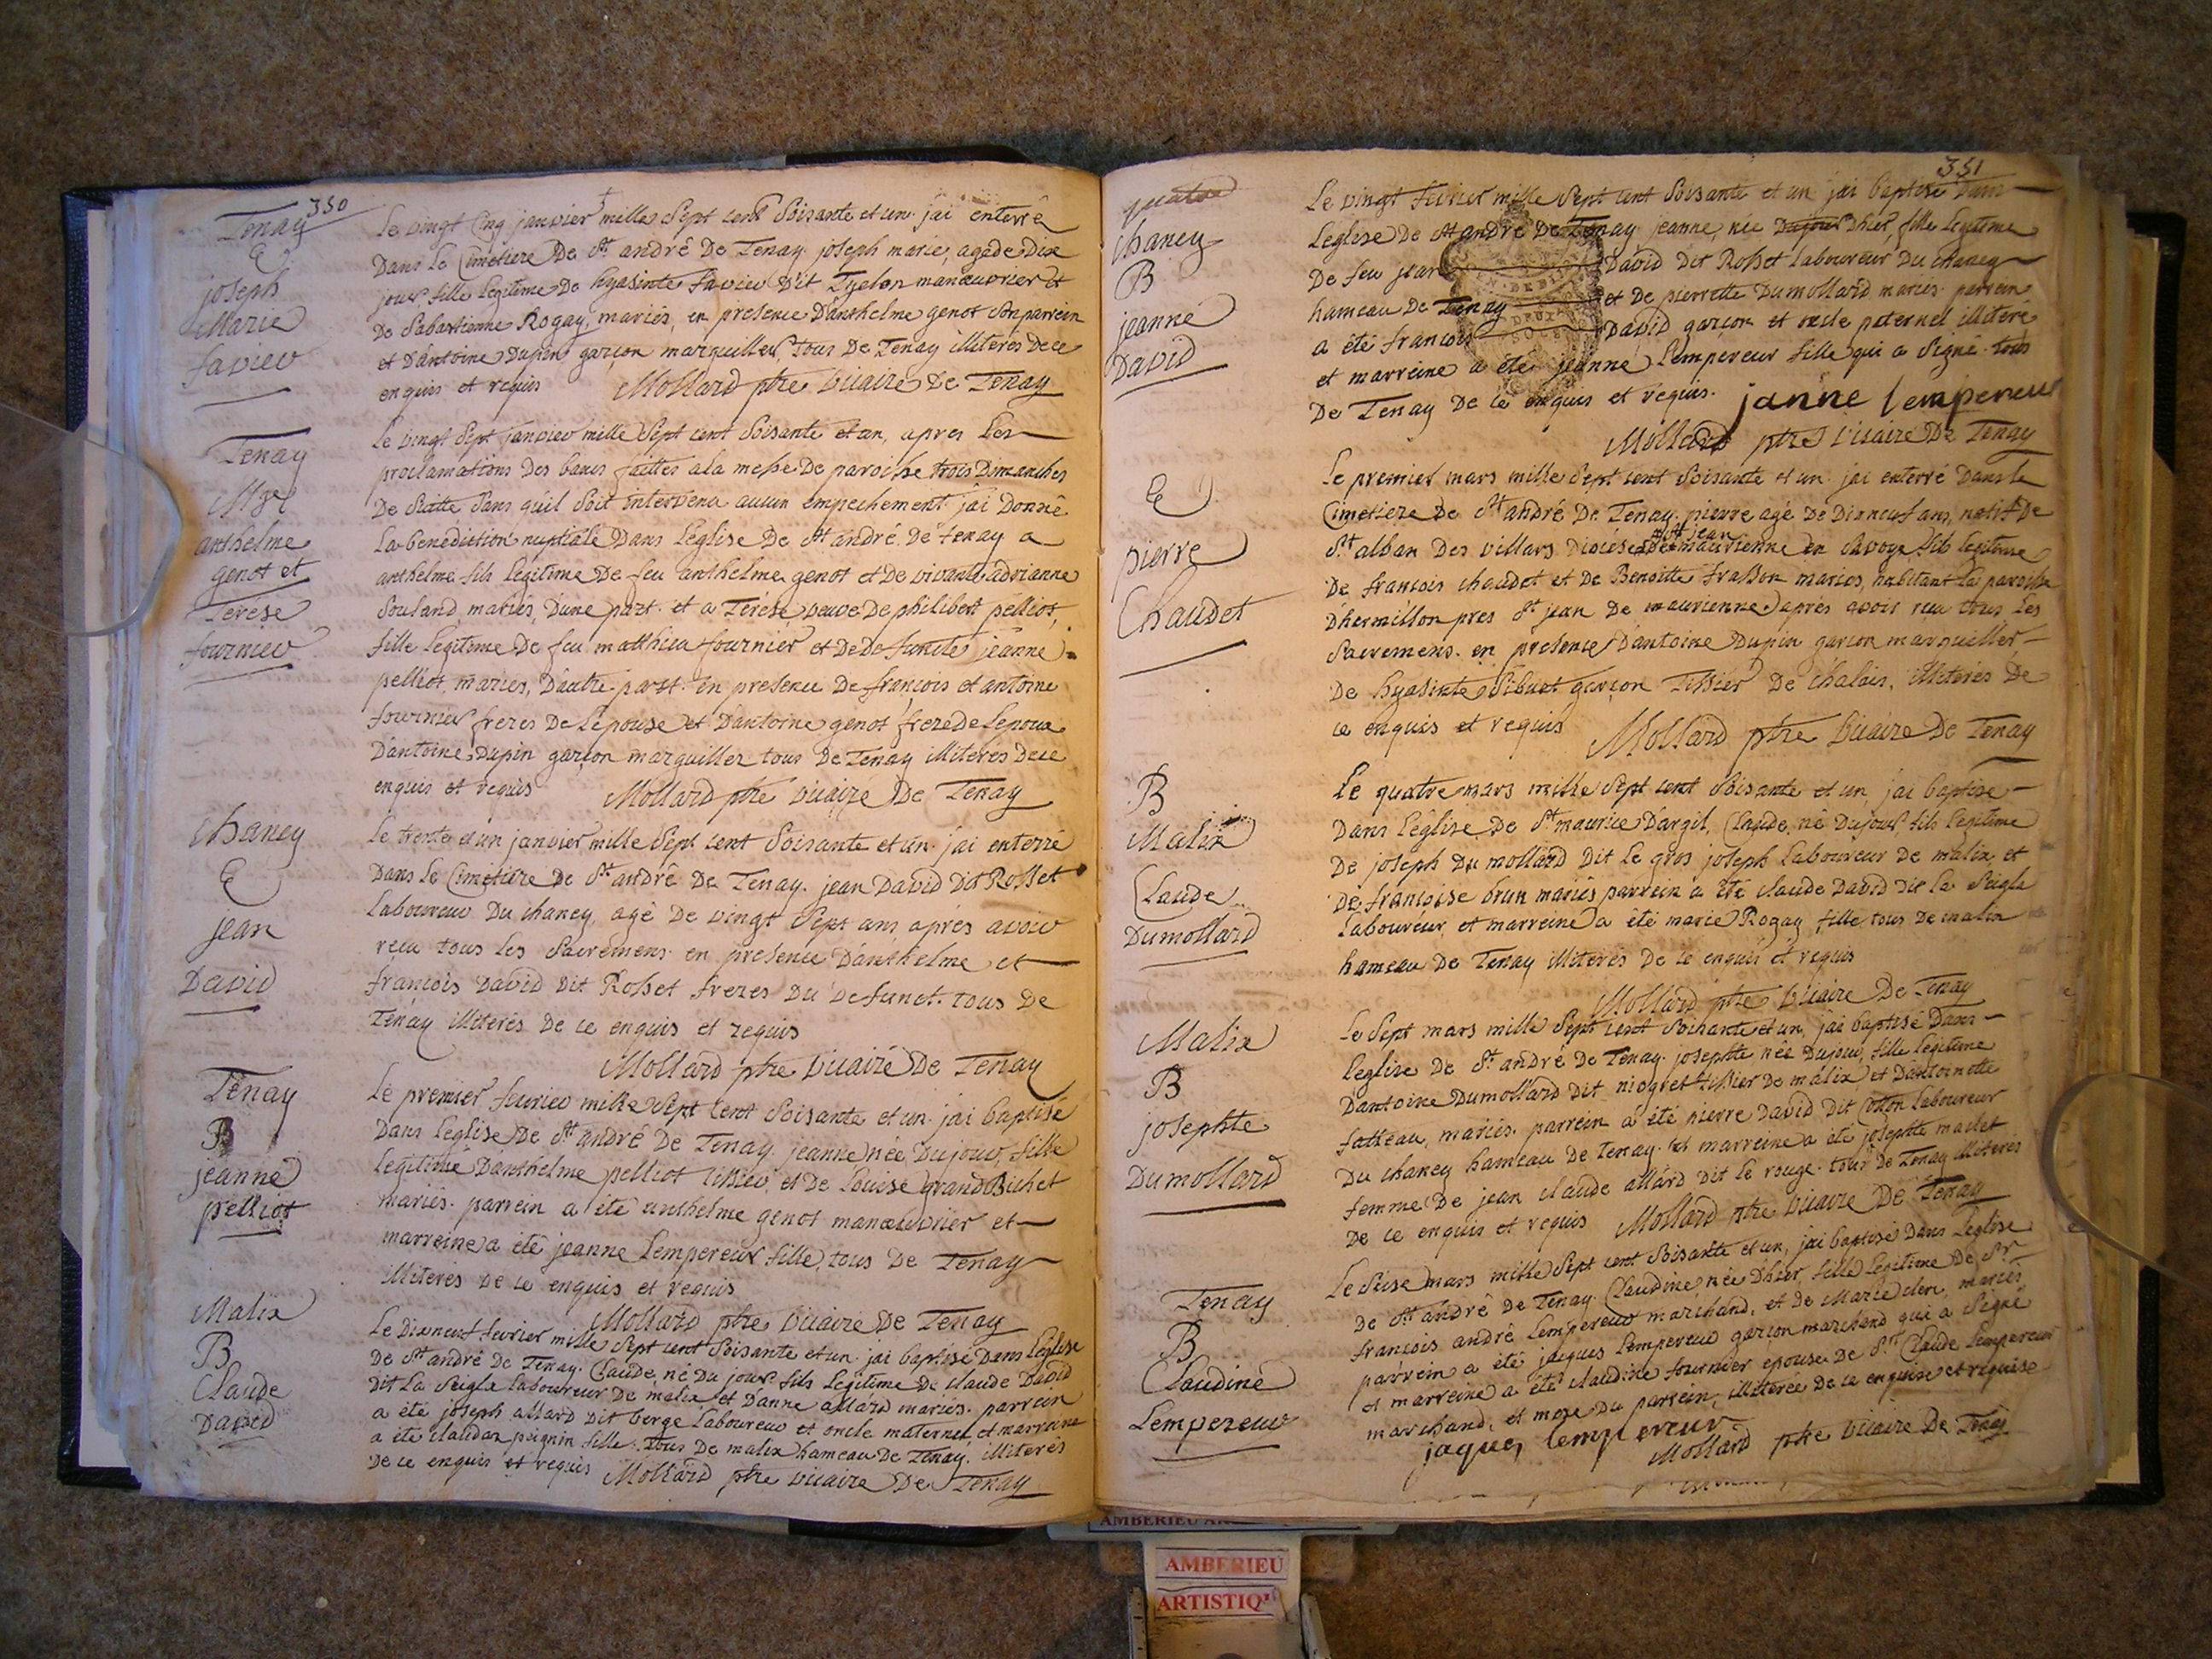 350
Tenay
E
joseph
Marie
favier
Le vingt Cinq janvier mille Sept cent Soisante et un j'ai enterré
Dans Le Cimetiere De St andré De Tenay joseph marie, agede Dix
jours fille Legitime De hyasinte favier Dit Tyelon manœuvrier et
De Sabastienne Rogay, mariés, en presence D'anthelme genot Son parrein
et D'antoine Dupin garçon marguiller, tous De Tenay illiteres De ce
enquis et requis Mollard ptre Vicaire De Tenay
Tenay
Mge
anthelme
genot et
Terese
fournier
Le vingt Sept janvier mille Sept cent Soisante et un, apres Les
proclamations Des bancs faittes a la messe De paroisse trois Dimanches
De Suitte Sans qu'il Soit intervenu aucun empechement j'ai Donné
La benediction nuptiale Dans L'eglise De St andré de tenay a
anthelme fils Legitime De feu anthelme genot et De vivante adrianne
Souland mariés, D'une part et a Terese veuve De philibert pelliot,
fille Legitime De feu matthieu fournier et De Defuncte jeanne
pelliot, mariés, D'autre part en presence De françois et antoine
fournier freres De L'epouse et D'antoine genot frere de L'epoux
D'antoine Dupin garçon marguiller tous De Tenay illiteres De ce
enquis et requis Mollard ptre Vicaire De Tenay
Chaney
E
jean
David
Le trente et un janvier mille Sept cent Soisante et un j'ai enterré
Dans Le Cimetiere De St andré De Tenay jean David Dit Rosset
Laboureur Du Chaney, agé De vingt Sept ans aprés avoir
reçu tous Les Sacremens en presence D'anthelme et
françois David Dit Rosset freres Du Defunct. tous De
Tenay illiterés De ce enquis et requis
Mollard ptre Vicaire De Tenay
Tenay
B
jeanne
pelliot
Le premier fevrier mille Sept Cent Soisante et un j'ai baptisé
Dans L'eglise De St andré De Tenay jeanne née Du jour, fille
Legitime D'anthelme pelliot tissier et De Louise grand Bichet
mariés. parrein a été anthelme genot manœuvrier et
marreine a été jeanne Lempereur fille, tous De Tenay
illiterés De ce enquis et requis
Mollard ptre Vicaire De Tenay
Malix
B
Claude
David
Le Dixneuf fevrier mille Sept cent Soisante et un j'ai baptisé Dans L'eglise
De St andré De Tenay. Claude, né Du jour fils Legitime De Claude David
Dit La Seigle Laboureur De malix et D'anne allard mariés. parrein
a été joseph allard Dit berge Laboureur et oncle maternel et marreine
a été claudaz peignin fille. tous De malix hameau De Tenay. illiterés
De ce enquis et requis Mollard ptre Vicaire De Tenay
351
Chaney
B
jeanne
David
Le vingt fevrier mille Sept cent Soisante et un j'ai baptisé Dans
L'eglise De St andré De Tenay jeanne, née Du jour D'hier, fille Legitime
De feu jean David Dit Rosset Laboureur Du Chaney
hameau De Tenay et De pierrette Dumollard mariés parrein
a été francois David garçon et oncle paternel illiteré
et marreine a été jeanne Lempereur fille qui a Signé tous
De Tenay De ce enquis et requis. janne lempereur
Mollard ptre Vicaire De Tenay
E
pierre
Chaudet
Le premier mars mille Sept cent Soisante et un j'ai enterré Dans Le
Cimetiere De St andré De Tenay pierre agé De Dixneuf ans, natif De
St alban Des villars Diocese De St jean maurienne en Savoye fils Legitime
De francois chaudet et De Benoitte frasson mariés, habitant La paroisse
D'hermillon pres St jean De maurienne aprés avoir reçu tous Les
Sacremens. en presence D'antoine Dupin garçon marguiller
De hyasinte Sibuet garçon tissier De Chalais, illiterés De
ce enquis et requis Mollard ptre Vicaire De Tenay
B
Malix
Claude
Dumollard
Le quatre mars mille Sept cent Soisante et un, j'ai baptisé
Dans L'eglise De St maurice D'argil, Claude, né Du jour fils Legitime
De joseph Du mollard Dit Le gros joseph Laboureur De malix, et
De francoise brun mariés parrein a été claude David Dit La Seigle
Laboureur, et marreine a été marie Rogay fille, tous De malix
hameau De Tenay illiterés De ce enquis et requis
Mollard ptre Vicaire De Tenay
Malix
B
josephte
Dumollard
Le Sept mars mille Sept cent Soisante et un, j'ai baptisé Dans
L'eglise De St andré De Tenay. josephte née Du jour, fille Legitime
D'antoine Dumollard Dit niogret tissier De malix et D'antoinette
fatteau, mariés. parrein a été pierre David Dit Cotton Laboureur
Du Chaney hameau De Tenay. et marreine a été josephte maclet
femme De jean claude allard Dit Le rouge. tous De Tenay illiteres
De ce enquis et requis Mollard ptre Vicaire De Tenay
Tenay
B
Claudine
Lempereur
Le Seise mars mille Sept cent Soisante et un, j'ai baptisé Dans L'eglise
De St andré De Tenay. Claudine née D'hier, fille Legitime De Sr
francois andré Lempereur marchand, et De Marie clerc, mariés,
parrein a été jacques Lempereur garçon marchand qui a Signé
et marreine a été claudine fournier epouse De Sr Claude Lempereur
marchand, et mere Du parrein, illiterée De ce enquise et requise
jaques lempereur
Mollard ptre Vicaire De Tenay
AMBERIEU
ARTISTIQ